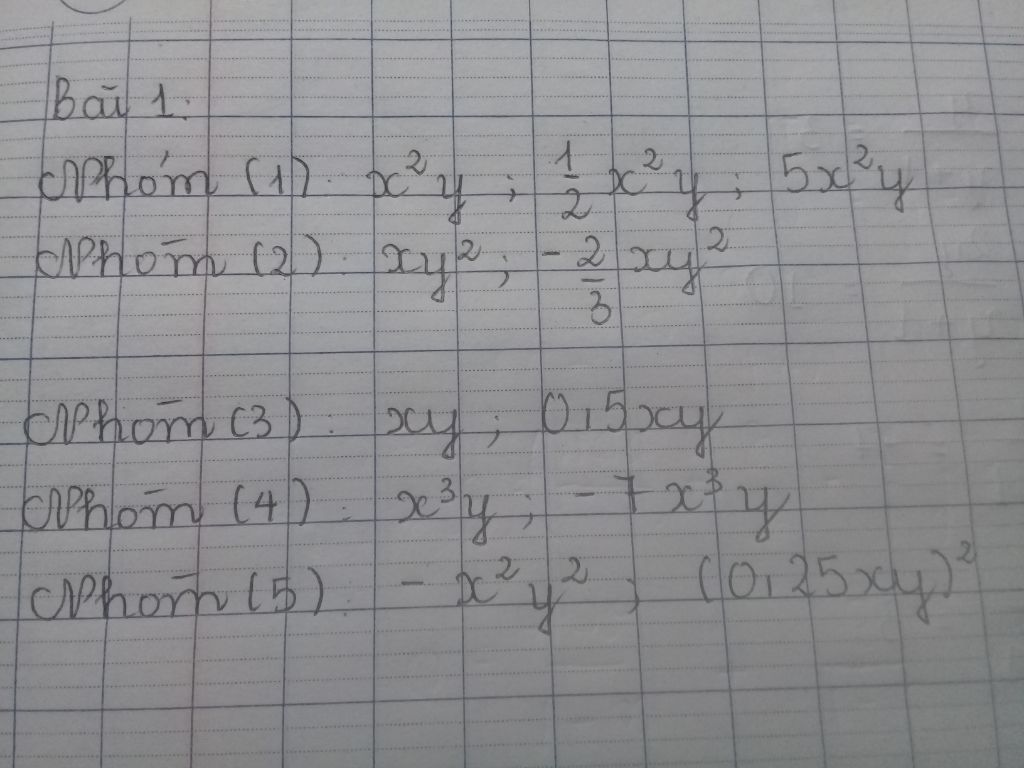 Bài 1.
Nhóm (1): x²y ; 1/2 x²y ; 5x²y
Nhóm (2): xy² ; -2/3 xy²
Nhóm (3): xy ; 0,5xy
Nhóm (4): x³y ; -7x³y
Nhóm (5): -x²y² ; (0,25xy)²